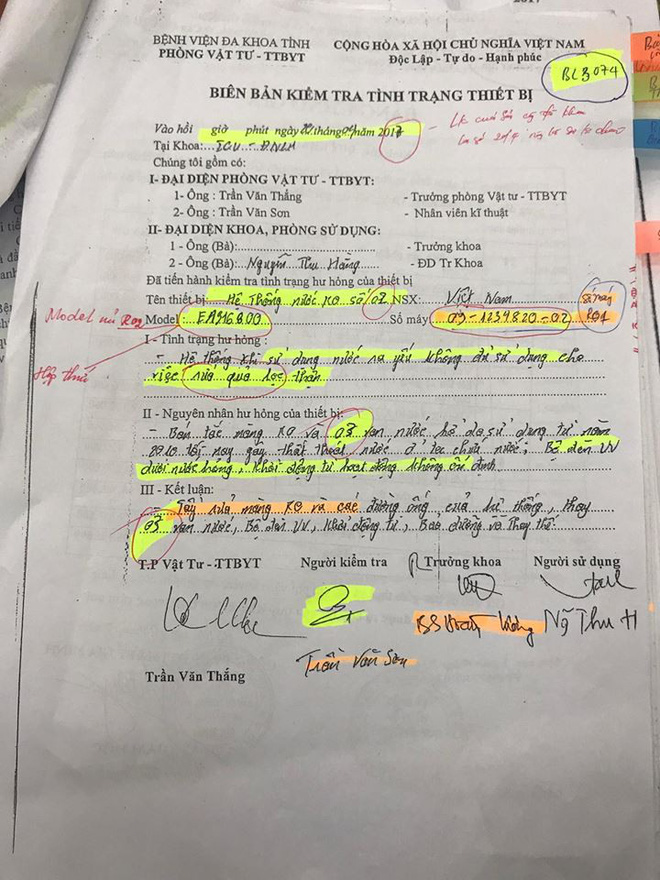 2017
BỆNH VIỆN ĐA KHOA TỈNH
PHÒNG VẬT TƯ - TTBYT
CỘNG HÒA XÃ HỘI CHỦ NGHĨA VIỆT NAM
Độc Lập - Tự do - Hạnh phúc
BL 3074
BIÊN BẢN KIỂM TRA TÌNH TRẠNG THIẾT BỊ
Vào hồi giờ phút ngày tháng năm 2017
Tại Khoa:...ICU - ĐNLM
Chúng tôi gồm có:
I- ĐẠI DIỆN PHÒNG VẬT TƯ - TTBYT:
1- Ông : Trần Văn Thắng - Trưởng phòng Vật tư - TTBYT
2- Ông : Trần Văn Sơn - Nhân viên kĩ thuật
II- ĐẠI DIỆN KHOA, PHÒNG SỬ DỤNG:
1 - Ông (Bà):.......... - Trưởng khoa
2 - Ông (Bà): Nguyễn Thu Hằng - ĐD Tr Khoa
Đã tiến hành kiểm tra tình trạng hư hỏng của thiết bị
Tên thiết bị: Hệ Thống nước RO số 02 NSX: Việt Nam
Model nó
Model: Số máy 03-1234820-02
I - Tình trạng hư hỏng :
- Hệ thống khi sử dụng nước ra yếu không đủ sử dụng cho
việc rửa quả lọc thận
II - Nguyên nhân hư hỏng của thiết bị:
- Bán tắc màng RO và 03 van nước do sử dụng từ năm
2010 tới nay gây thất thoát nước ở téc chứa nước, Bộ đèn UV
dưới nước hỏng, Khởi động từ hoạt động không ổn định
III - Kết luận:
Tẩy rửa màng RO và các đường ống của hệ thống, thay
03 van nước, Bộ đèn UV, Khởi động từ, Bảo dưỡng và Thay thế.
T.P Vật Tư -TTBYT Người kiểm tra Trưởng khoa Người sử dụng
BS Ng Thu H
Trần Văn Sơn
Trần Văn Thắng